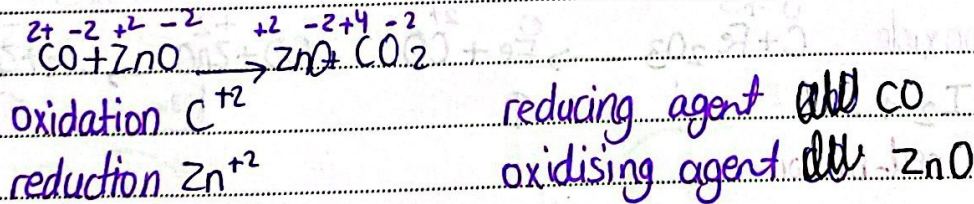 2+ -2 +2 -2 +2 -2 +4 -2
CO + ZnO → ZnO + CO2
oxidation C+2 reducing agent CO
reduction Zn+2 oxidising agent ZnO